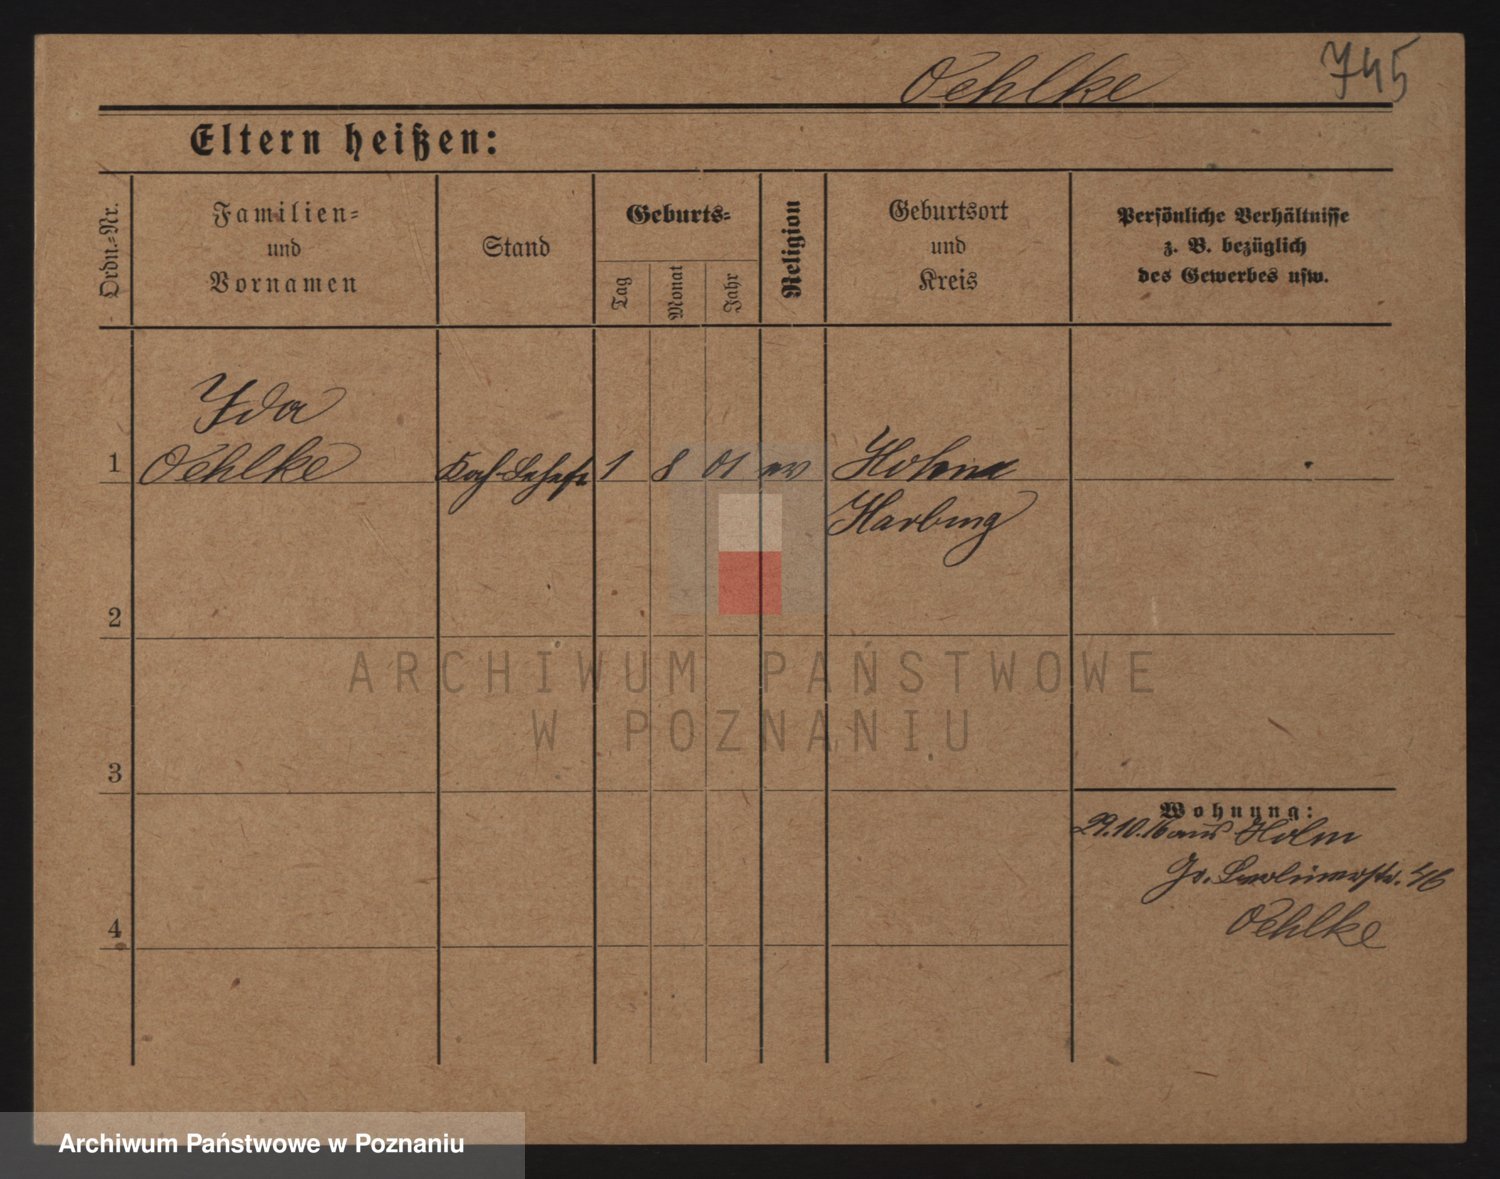 Oehlke 745
Eltern heißen:
Ordn.-Nr.
Familien-
und
Vornamen
Stand
Geburts-
Tag
Monat
Jahr
Religion
Geburtsort
und
Kreis
Persönliche Verhältnisse
z. B. bezüglich
des Gewerbes usw.
Ida
1 Oehlke 1 8 01 ev Holm
Harburg
2
3
4
Wohnung:
29.10.16 aus Holm
46
Oehlke
ARCHIWUM PAŃSTWOWE
W POZNANIU
Archiwum Państwowe w Poznaniu